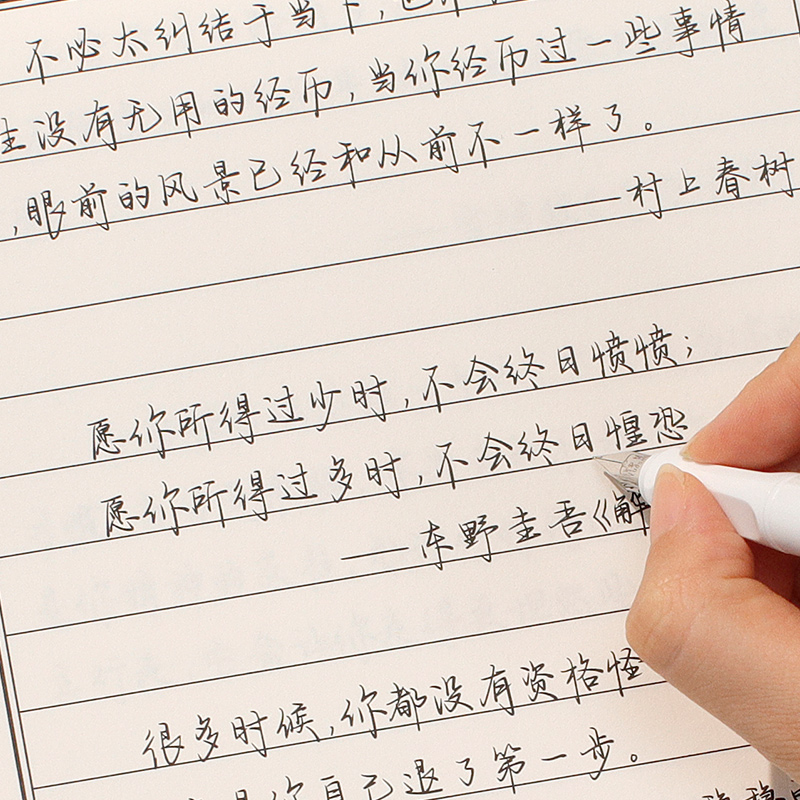 不必太纠结于当下,也
生没有无用的经历,当你经历过一些事情
,眼前的风景已经和从前不一样了。
——村上春树
愿你所得过少时,不会终日愤愤;
愿你所得过多时,不会终日惶恐
——东野圭吾《解
很多时候,你都没有资格怪
是你自己退了第一步。